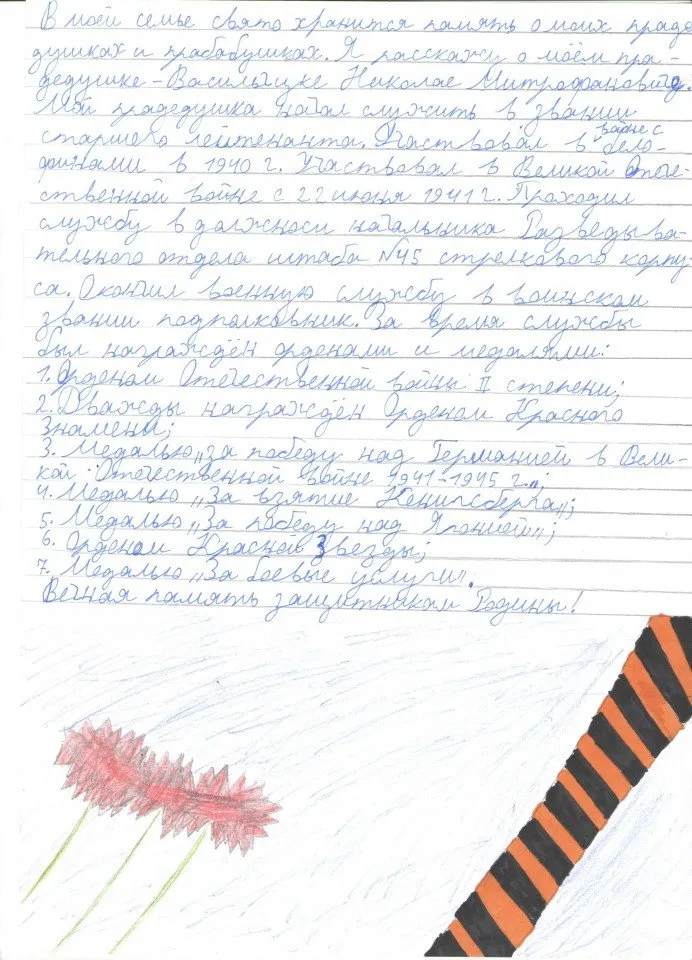 В моей семье свято хранится память о моих праде
душках и прабабушках. Я расскажу о моём пра-
дедушке – Васильцике Николае Митрофановиче.
Мой прадедушка начал служить в звании
старшего лейтенанта. Участвовал в войне с бело-
финами в 1940 г. Участвовал в Великой Отече-
ственной войне с 22 июня 1941 г. Проходил
службу в должноси начальника Разведыва-
тельного отдела штаба №45 стрелкового корпу-
са. Окончил военную службу в воинском
звании подполковник. За время службы
был награждён орденами и медалями:
1. Орденом Отечественной войны II степени;
2. Дважды награждён Орденом Красного
Знамени;
3. Медалью „за победу над Германией в Вели-
кой Отечественной войне 1941-1945 г.„;
4. Медалью „За взятие Кенигсберга„;
5. Медалью „За победу над Японией„;
6. Орденом Красной Звезды;
7. Медалью „За боевые услуги".
Вечная память защитникам Родины!